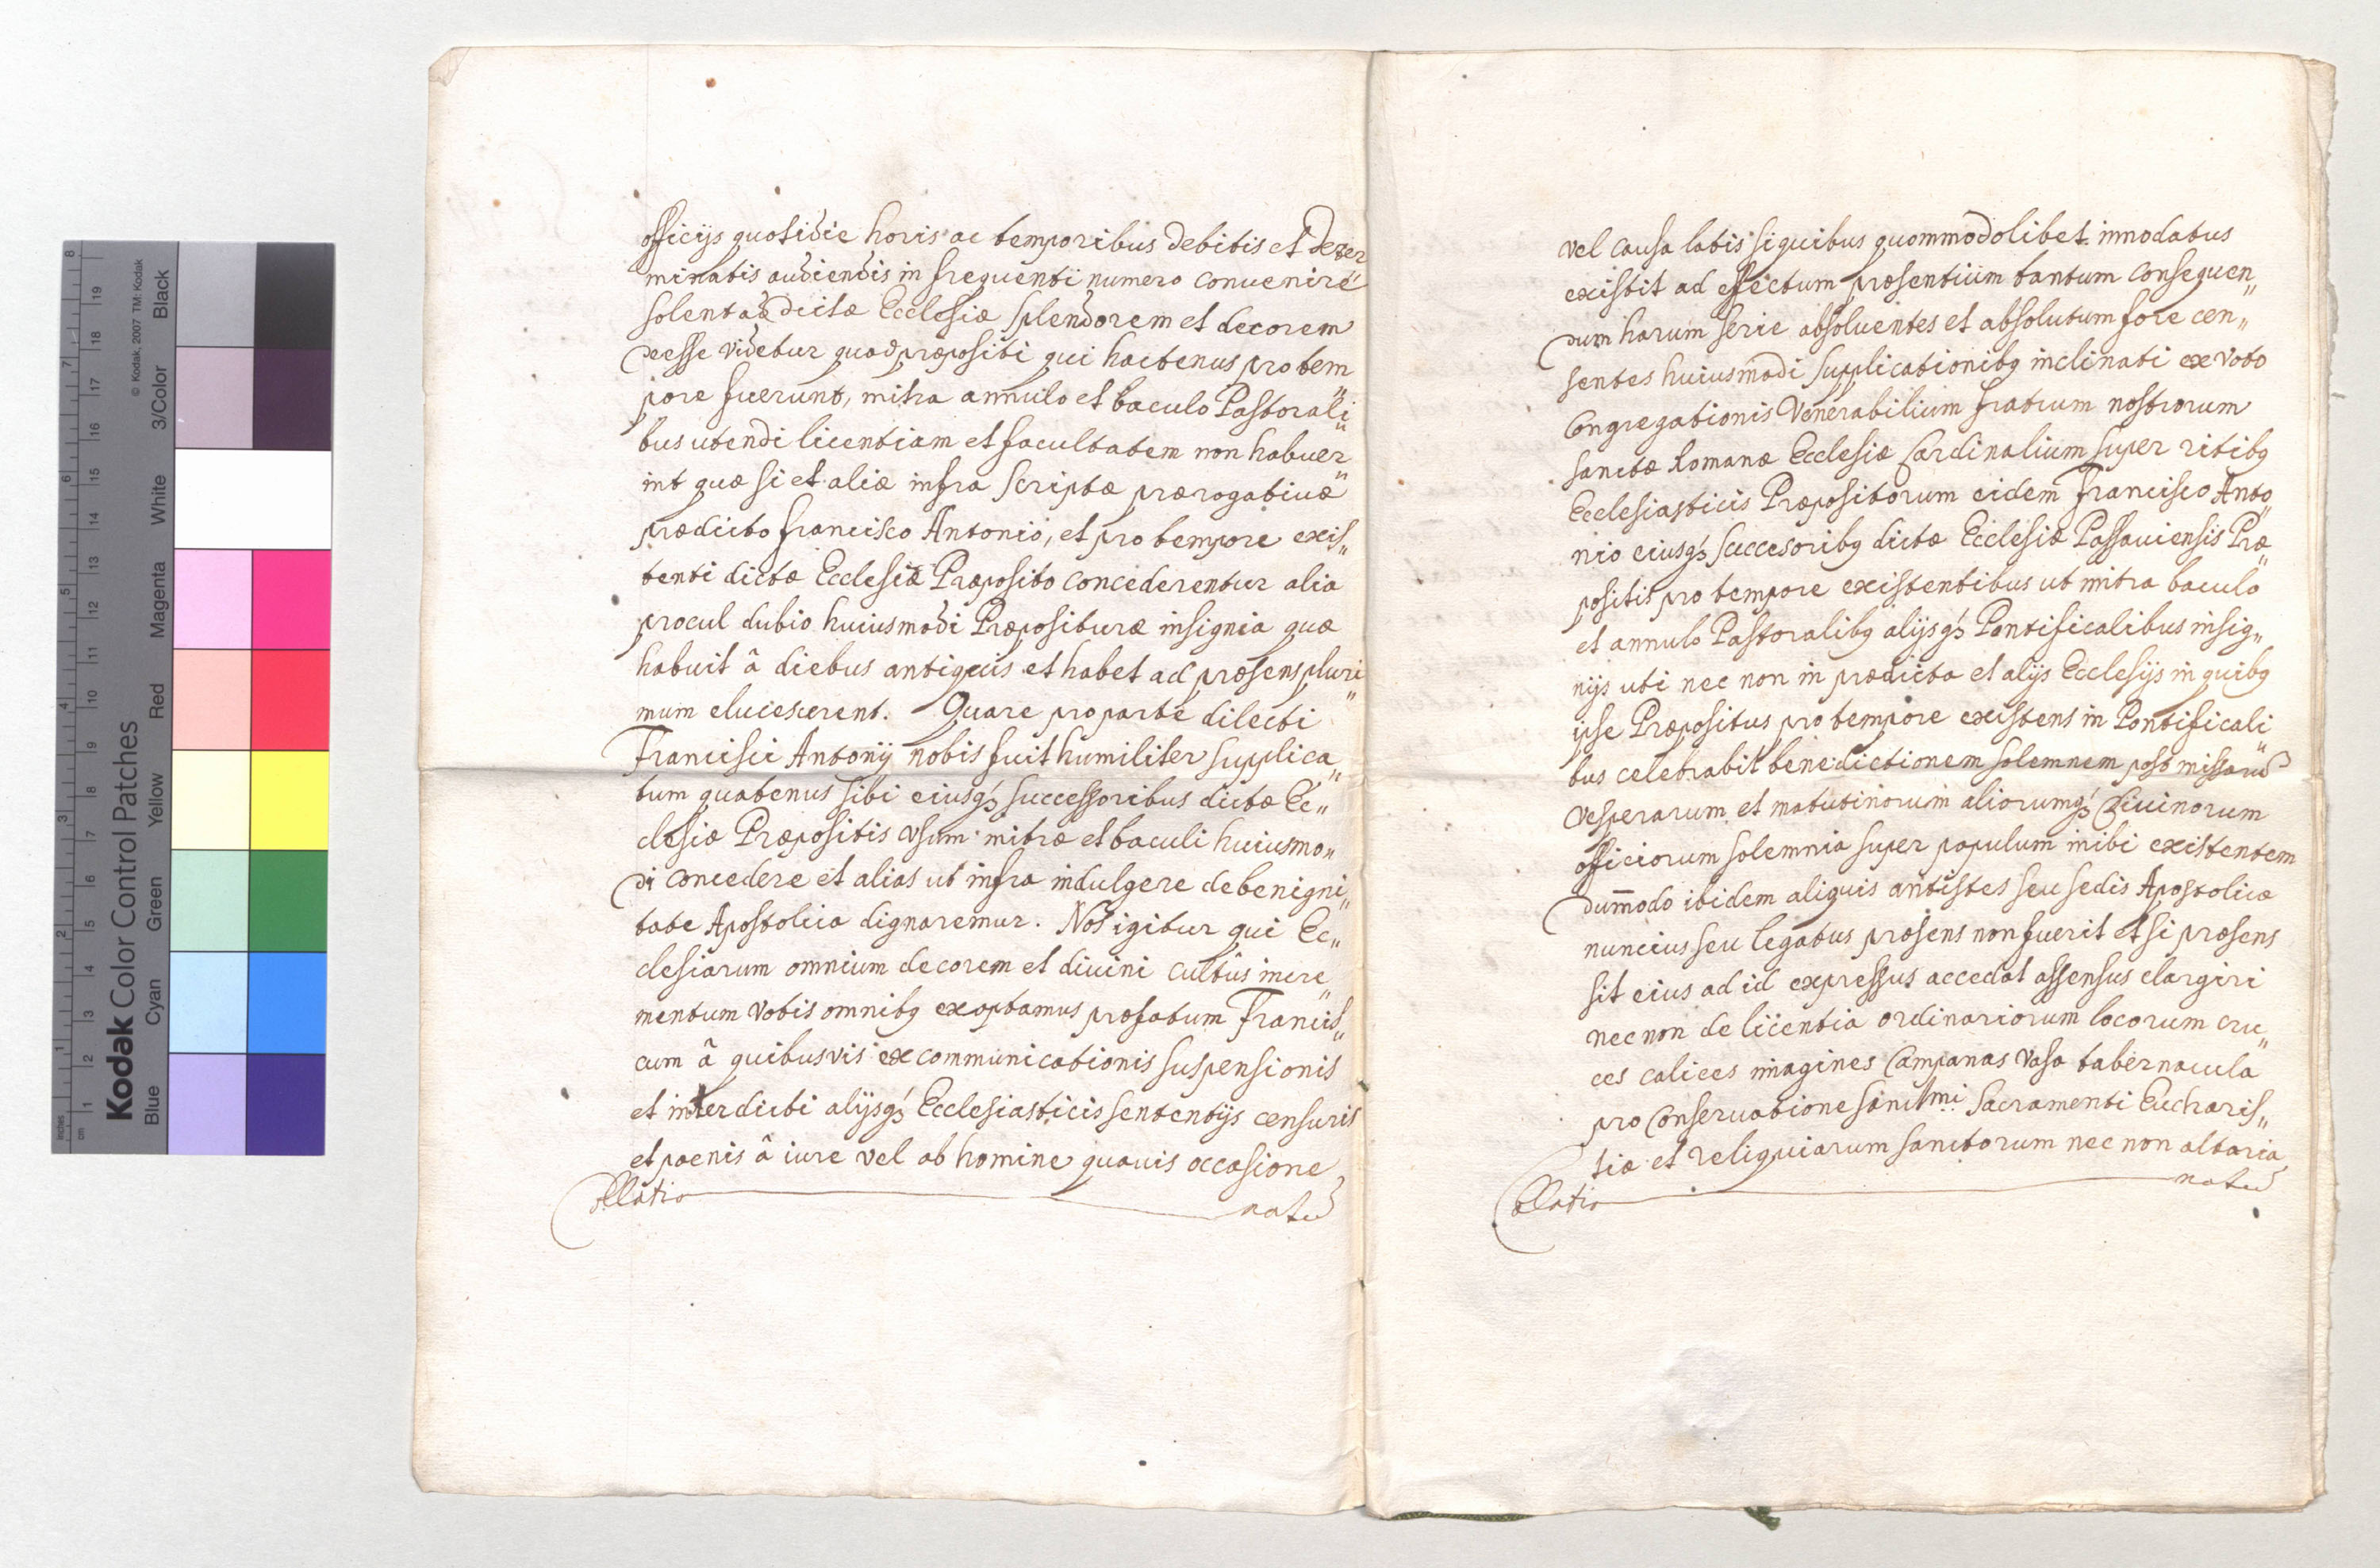 officijs quotidie horis ac temporibus debitis et deter
minatis audiendis in frequenti numero conuenire
solent ad dictæ Ecclesiæ splendorem et decorem
deesse videtur quod præpositi qui hactenus pro tem„
pore fuerunt, mitra annulo et baculo Pastorali„
bus utendi licentiam et facultatem non habuer„
int quæ si et aliæ infra scriptæ prærogatiuæ
prædicto Francisco Antonio, et pro tempore exis„
tenti dictæ Ecclesiæ Præposito concederentur alia
procul dubio huiusmodi Præposituræ insignia quæ
habuit â diebus antiquis et habet ad præsens pluri„
mum elucescerent. Quare pro parte dilecti
Francisci Antonij nobis fuit humiliter supplica„
tum quatenus sibi eiusq3 successoribus dictæ Ec„
clesiæ Præpositis vsum mitræ et baculi huiusmo„
di concedere et alias ut infra indulgere de benigni„
tate Apostolica dignaremur. Nos igitur qui Ec„
clesiarum omnium decorem et diuini cultûs incre„
mentum votis omnibq exoptamus præfatum Francis„
cum â quibusvis excommunicationis suspensionis
et interdicti alijsq3 Ecclesiasticis sententijs censuris
et pœnis â iure vel ab homine quauis occasione
Collatio natū
vel causa latis si quibus quommodolibet innodatus
existit ad effectum præsentium tantum consequen„
dum harum serie absoluentes et absolutum fore cen„
sentes huiusmodi supplicationibq inclinati ex voto
Congregationis Venerabilium fratrum nostrorum
sanctæ Romanæ Ecclesiæ Cardinalium super ritibq
Ecclesiasticis Præpositorum eidem Francisco Anto„
nio eiusq3 succesoribq dictæ Ecclesiæ Passauiensis Præ„
positis pro tempore existentibus ut mitra baculo
et annulo Pastoralibq alijsq3 Pontificalibus insig„
nijs uti nec non in prædicta et alijs Ecclesijs in quibq
ipse Præpositus pro tempore existens in Pontificali„
bus celebrabit benedictionem solemnem post missarū
vesperarum et matutinorum aliorumq3 Diuinorum
officiorum solemnia super populum inibi existentem
dum̄odo ibidem aliquis antistes seu sedis Apostolicæ
nuncius seu legatus præsens non fuerit et si præsens
sit eius ad id expressus accedat assensus elargiri
nec non de licentia ordinariorum locorum cru„
ces calices imagines Campanas vasa tabernacula
pro Conseruatione sanctmi Sacramenti Eucharis„
tiæ et reliquiarum sanctorum nec non altaria
Collatio natū
Kodak Color Control Patches
© Kodak, 2007 TM: Kodak
Blue Cyan Green Yellow Red Magenta White 3/Color Black
inches 1 2 3 4 5 6 7 8
cm 1 2 3 4 5 6 7 8 9 10 11 12 13 14 15 16 17 18 19